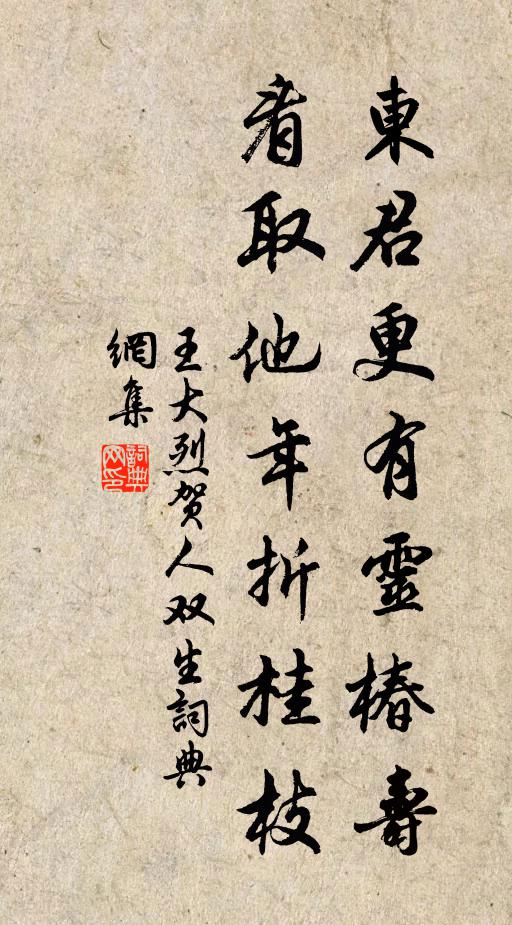 東君更有靈椿壽
看取他年折桂枝
王大烈贺人双生詞典
網集
詞典
网印